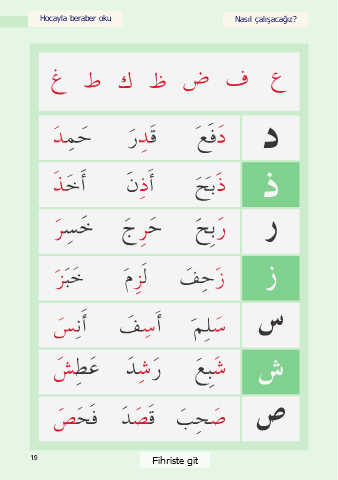 Hocayla beraber oku
Nasıl çalışacağız?
ع ف ض ظ ك ط غ
د دَفَعَ قَدِرَ حَمِدَ
ذ ذَبَحَ أَذِنَ أَخَذَ
ر رَبِحَ حَرِجَ خَسِرَ
ز زَحِفَ لَزِمَ خَبَزَ
س سَلِمَ أَسِفَ أَنِسَ
ش شَبِعَ رَشِدَ عَطِشَ
ص صَحِبَ قَصَدَ فَحَصَ
19
Fihriste git